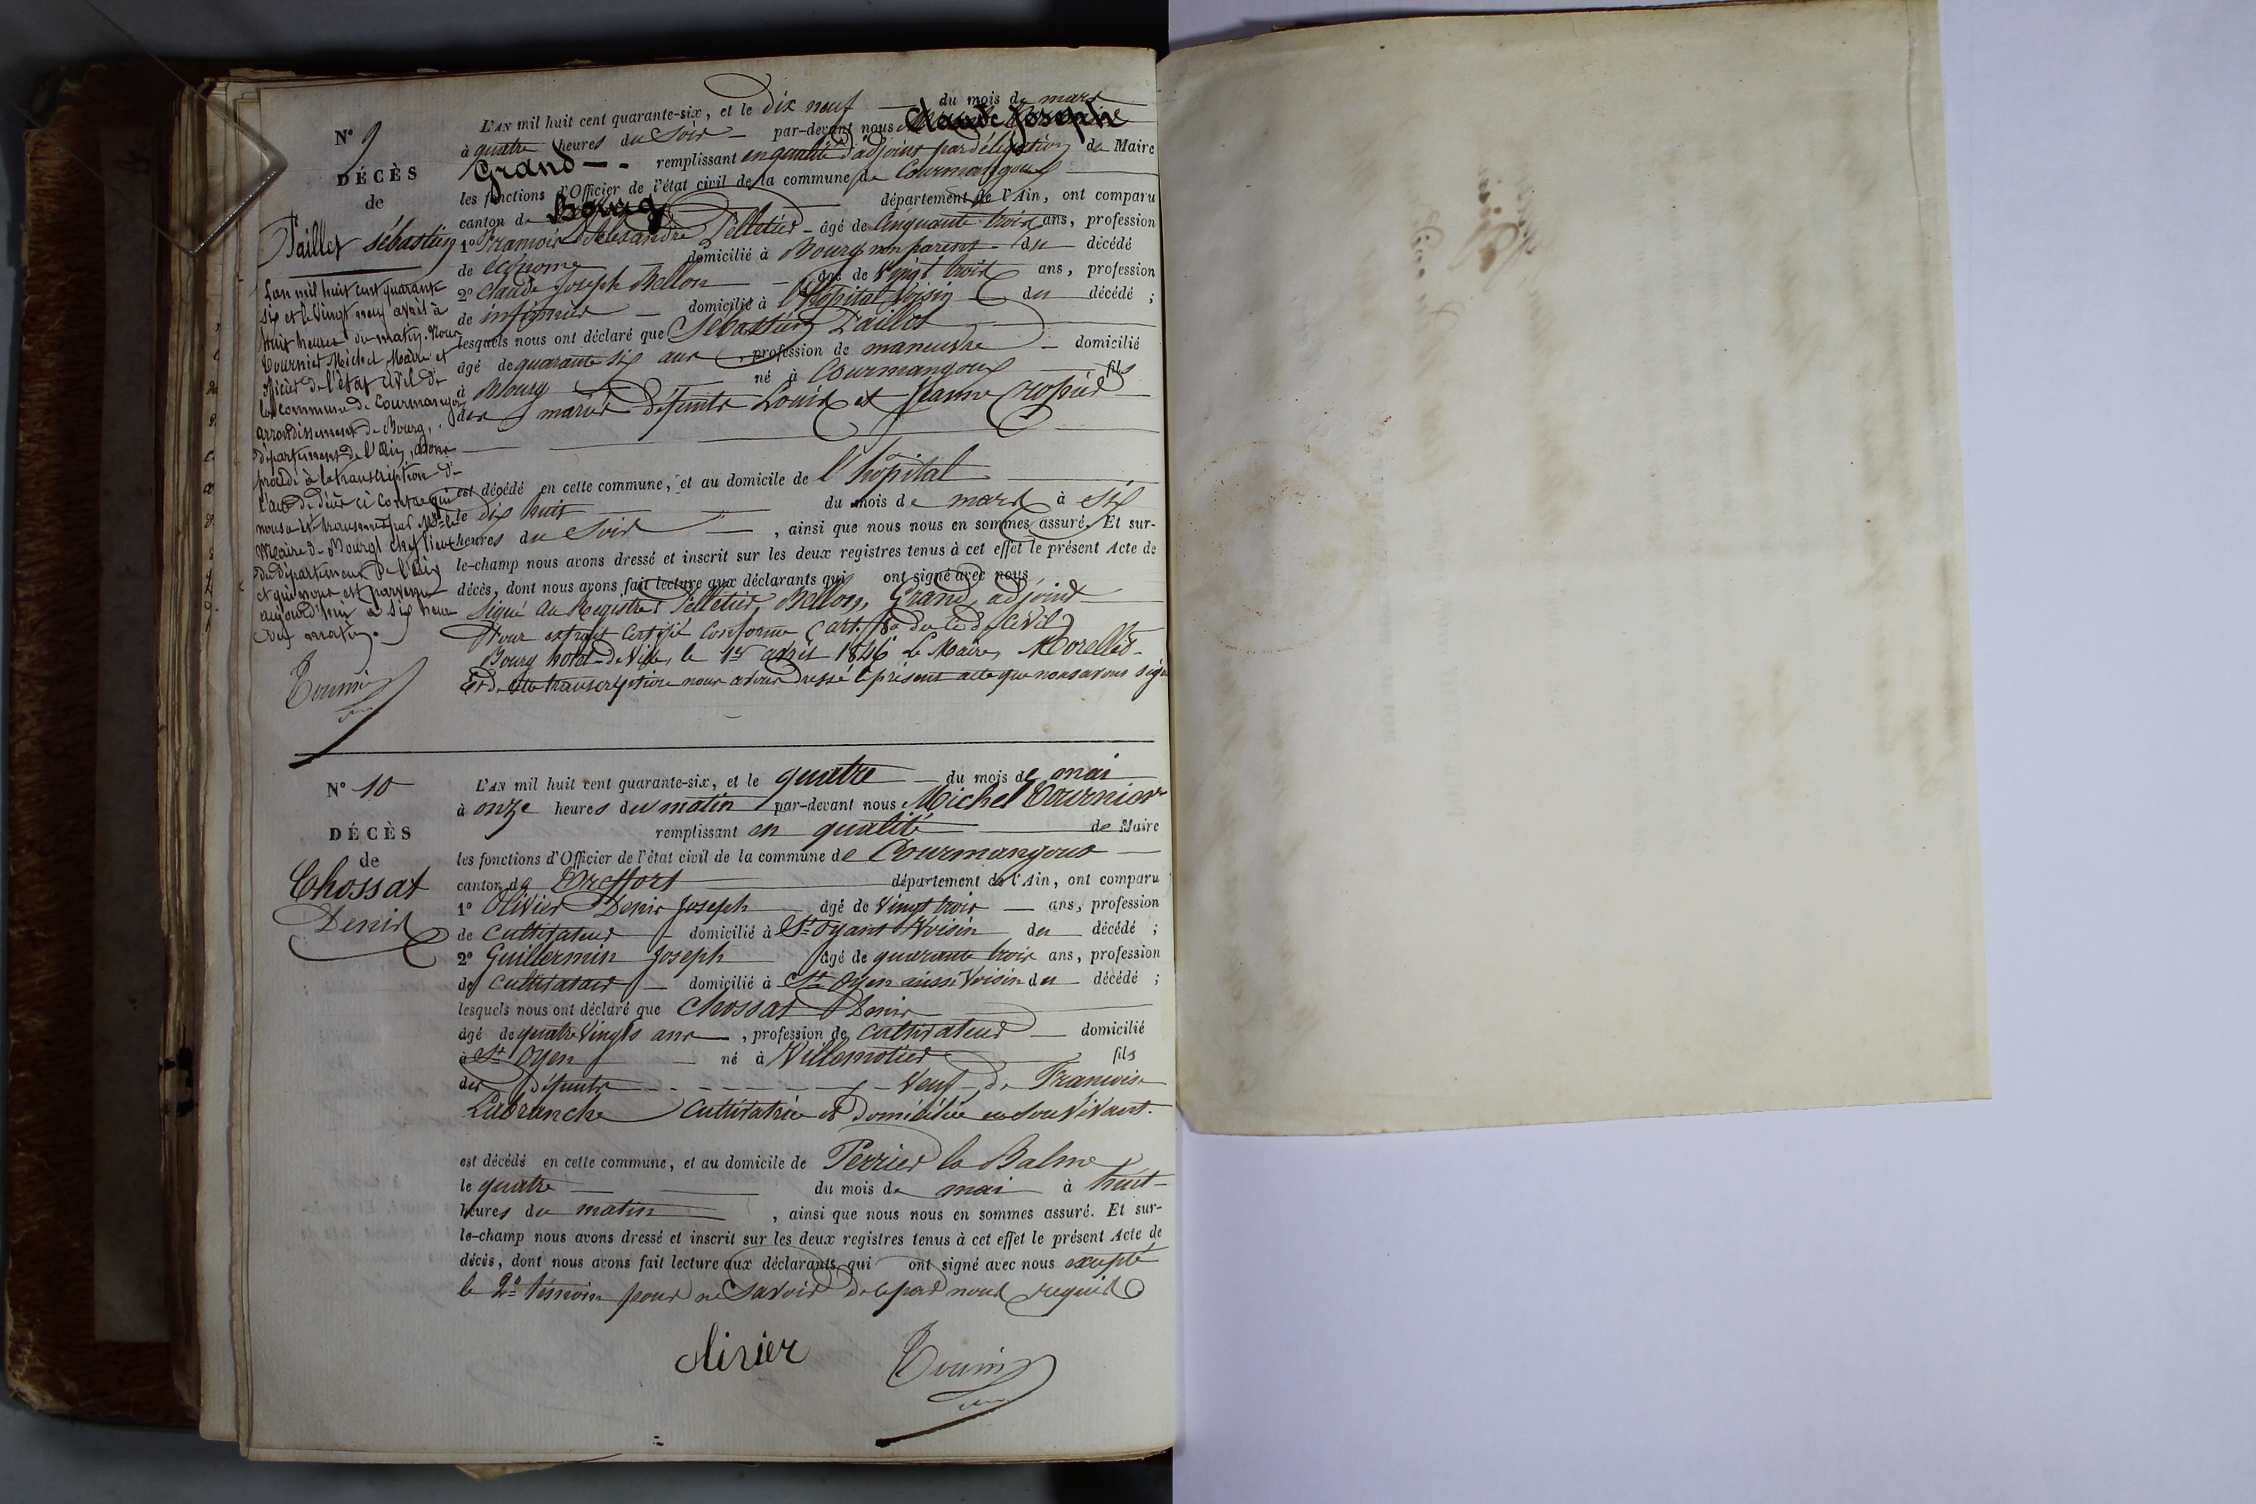 N° 9
DÉCÈS
de
Paillet Sébastien
L'an mil huit cent quarante
six et le vingt neuf avril à
huit heures du matin. Nous
Tournier Michel Maire et
officier de l'état civil de
la commune de Courmangoux
arrondissement de Bourg,
département de l'Ain, avons
procédé à la transcription de
l'acte de décès ci contre qui
nous a été transmis par Mr le
Maire de Bourg chef lieu
du département de l'Ain
et qui nous est parvenu
aujourd'hui à six heures
du matin.
Tournier
L'AN mil huit cent quarante-six, et le dix neuf du mois de mars
à quatre heures du Soir par-devant nous Claude Joseph
Grand remplissant en qualité d'adjoint par délégation de Maire
les fonctions d'Officier de l'état civil de la commune de Courmangoux
canton de Bourg département de l'Ain, ont comparu
1° François Alexandre Pelletier âgé de Cinquante trois ans, profession
de économe domicilié à Bourg non parent du décédé
2° Claude Joseph Ballon âgé de Vingt trois ans, profession
de infirmier domicilié à l'hôpital, Voisin du décédé ;
lesquels nous ont déclaré que Sébastien Paillet
âgé de quarante six ans, profession de maneuvre domicilié
à Bourg né à Courmangoux fils
des mariés défunts Louis et Jeanne Crozier
est décédé en cette commune, et au domicile de l'hôpital
le dix huit du mois de mars à six
heures du Soir, ainsi que nous nous en sommes assuré. Et sur-
le-champ nous avons dressé et inscrit sur les deux registres tenus à cet effet le présent Acte de
décès, dont nous avons fait lecture aux déclarants qui ont signé avec nous
Signé au Registre Pelletier, Ballon, Grand, adjoint
Pour extrait certifié conforme (art. 80 du Code Civil)
Bourg hôtel-de-Ville, le 1er avril 1846 Le Maire, Morellet
Et de cette transcription nous avons dressé le présent acte que nous avons signé
N° 10
DÉCÈS
de
Chossat
Denis
L'AN mil huit cent quarante-six, et le quatre du mois de mai
à onze heures du matin par-devant nous Michel Tournier
remplissant en qualité de Maire
les fonctions d'Officier de l'état civil de la commune de Courmangoux
canton de Treffort département de l'Ain, ont comparu
1° Olivier Denis Joseph âgé de Vingt trois ans, profession
de cultivateur domicilié à St Oyant Voisin du décédé ;
2° Guillermin Joseph âgé de quarante trois ans, profession
de cultivateur domicilié à St Oyen aussi Voisin du décédé ;
lesquels nous ont déclaré que Chossat Denis
âgé de quatre Vingts ans, profession de cultivateur domicilié
à St Oyen né à Villemotier fils
des défunts Veuf de Françoise
Labranche Cultivatrice et domiciliée en son Vivant.
est décédé en cette commune, et au domicile de Perrier la Balme
le quatre du mois de mai à huit
heures du matin, ainsi que nous nous en sommes assuré. Et sur-
le-champ nous avons dressé et inscrit sur les deux registres tenus à cet effet le présent Acte de
décès, dont nous avons fait lecture aux déclarants qui ont signé avec nous excepté
le 2e témoin pour ne Savoir de ce par nous requis
Olivier
Tournier